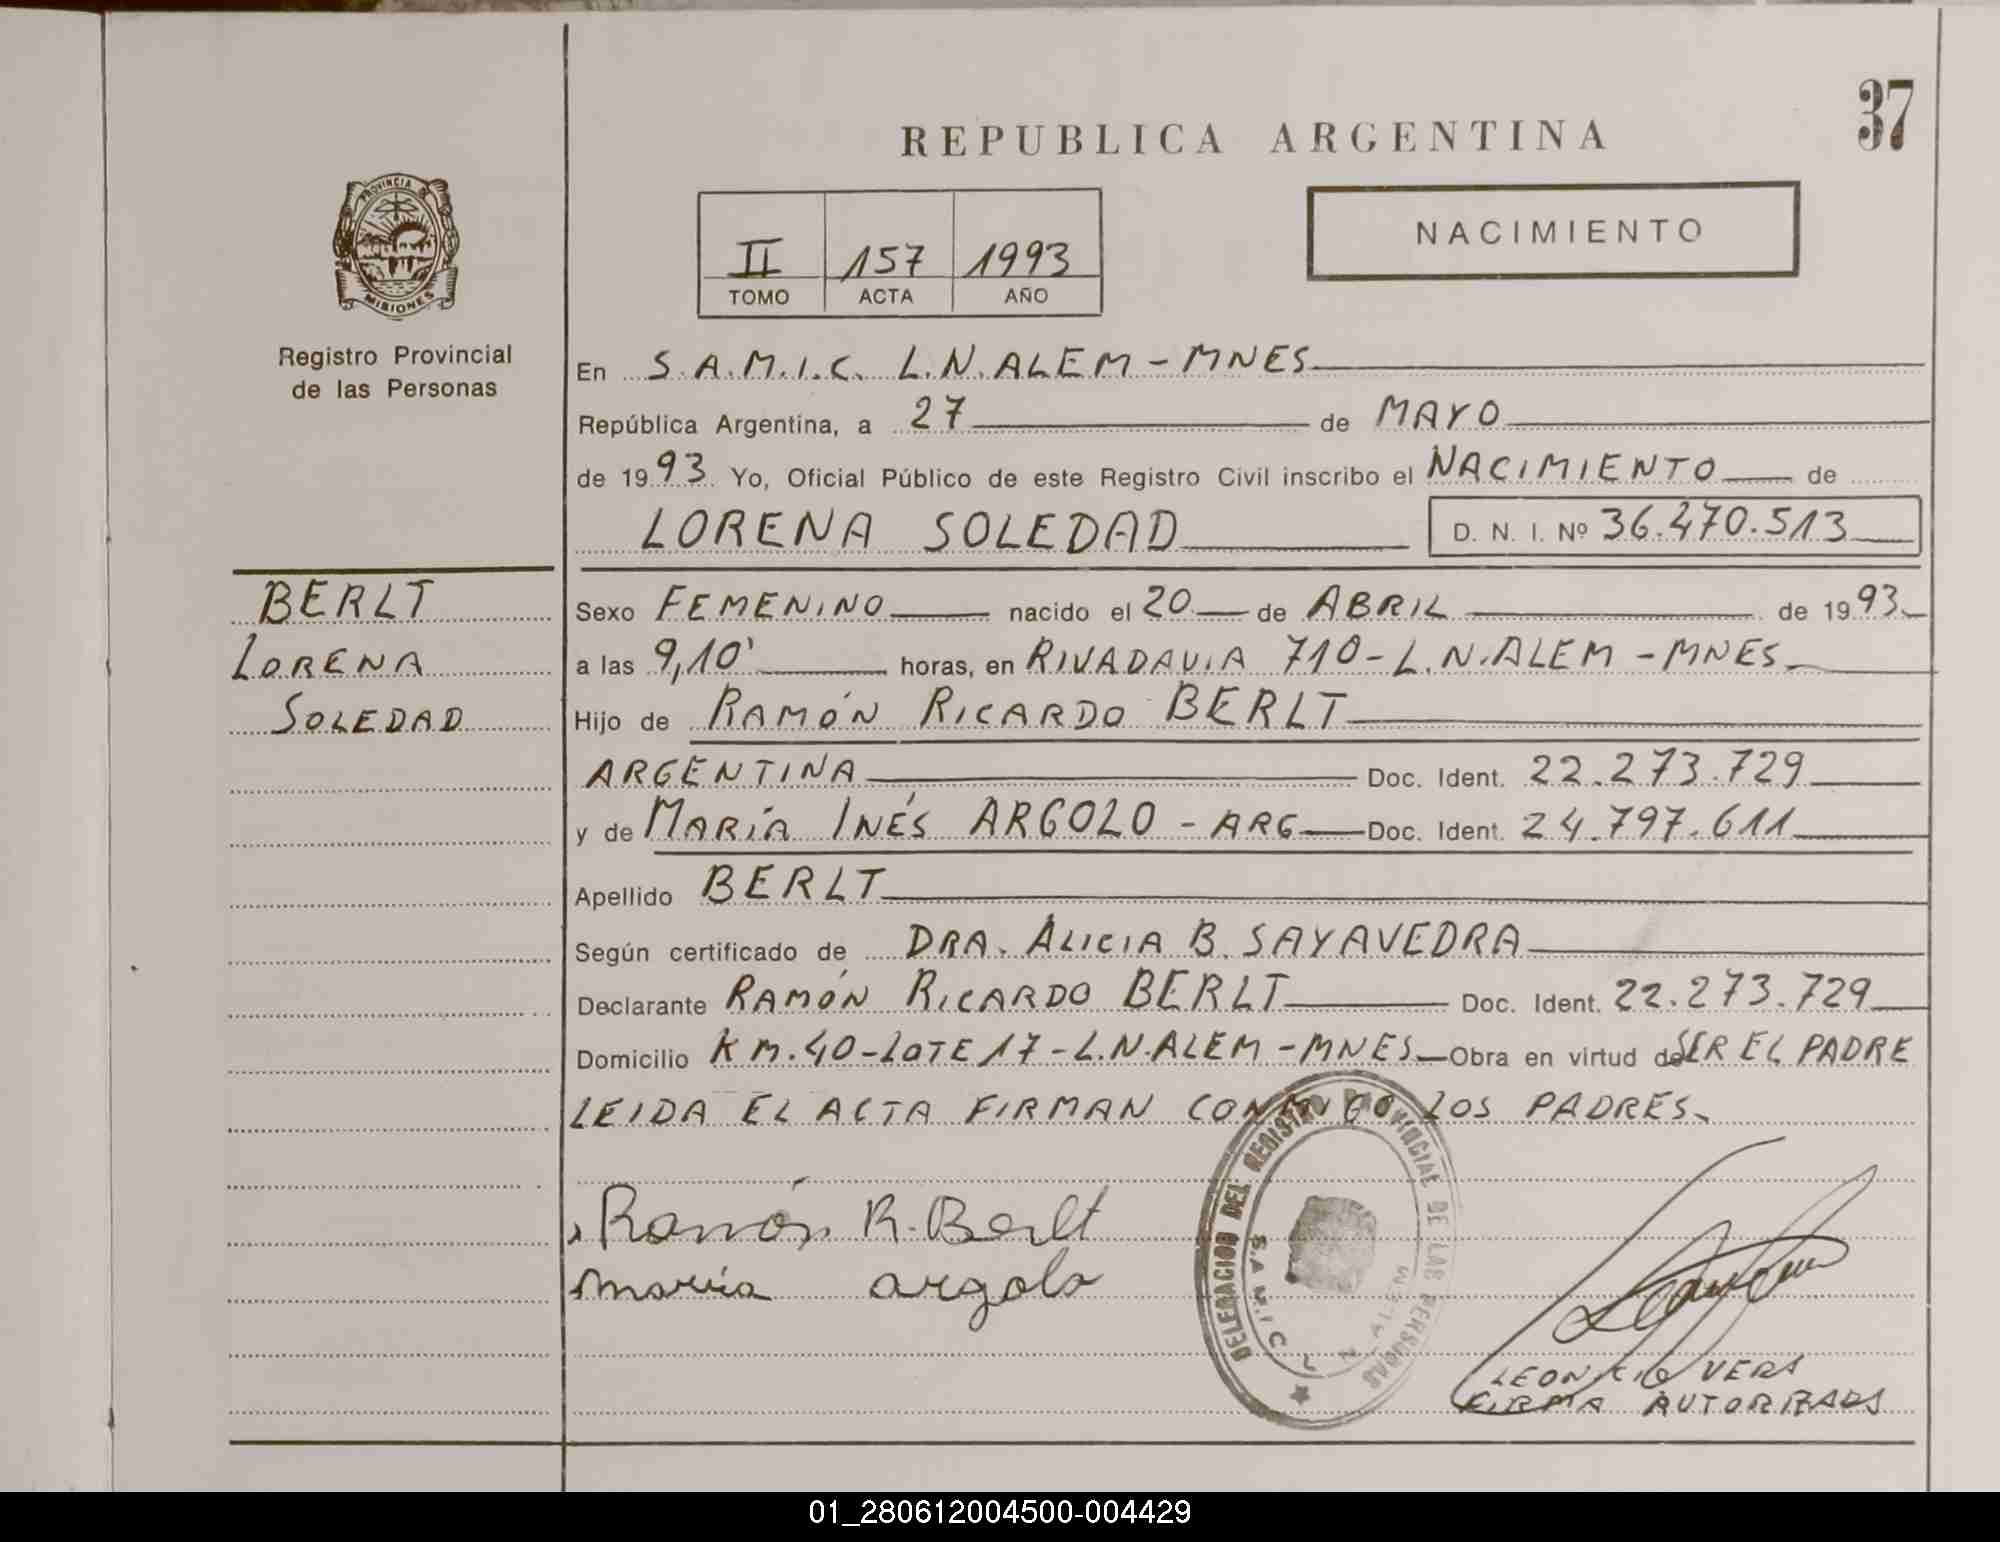 37
REPUBLICA ARGENTINA
PROVINCIA DE
MISIONES
Registro Provincial
de las Personas
II 157 1993
TOMO ACTA AÑO
NACIMIENTO
En S.A.M.I.C. L.N.ALEM - MNES
República Argentina, a 27 de MAYO
de 1993 Yo, Oficial Público de este Registro Civil inscribo el NACIMIENTO de
LORENA SOLEDAD D. N. I. Nº 36.470.513
BERLT
LORENA
SOLEDAD
Sexo FEMENINO nacido el 20 de ABRIL de 1993
a las 9,10' horas, en RIVADAVIA 710 - L.N.ALEM - MNES
Hijo de RAMÓN RICARDO BERLT
ARGENTINA Doc. Ident. 22.273.729
y de MARÍA INÉS ARGOLO - ARG Doc. Ident. 24.797.611
Apellido BERLT
Según certificado de DRA. ALICIA B. SAYAVEDRA
Declarante RAMÓN RICARDO BERLT Doc. Ident. 22.273.729
Domicilio KM.40-LOTE 17-L.N.ALEM-MNES Obra en virtud de SER EL PADRE
LEIDA EL ACTA FIRMAN CONMIGO LOS PADRES
Ramón R. Berlt
maría argolo
DELEGACION DEL REGISTRO PROVINCIAL DE LAS PERSONAS
S.A.M.I.C. L. N. ALEM
LEONCIO VERA
FIRMA AUTORIZADA
01_280612004500-004429